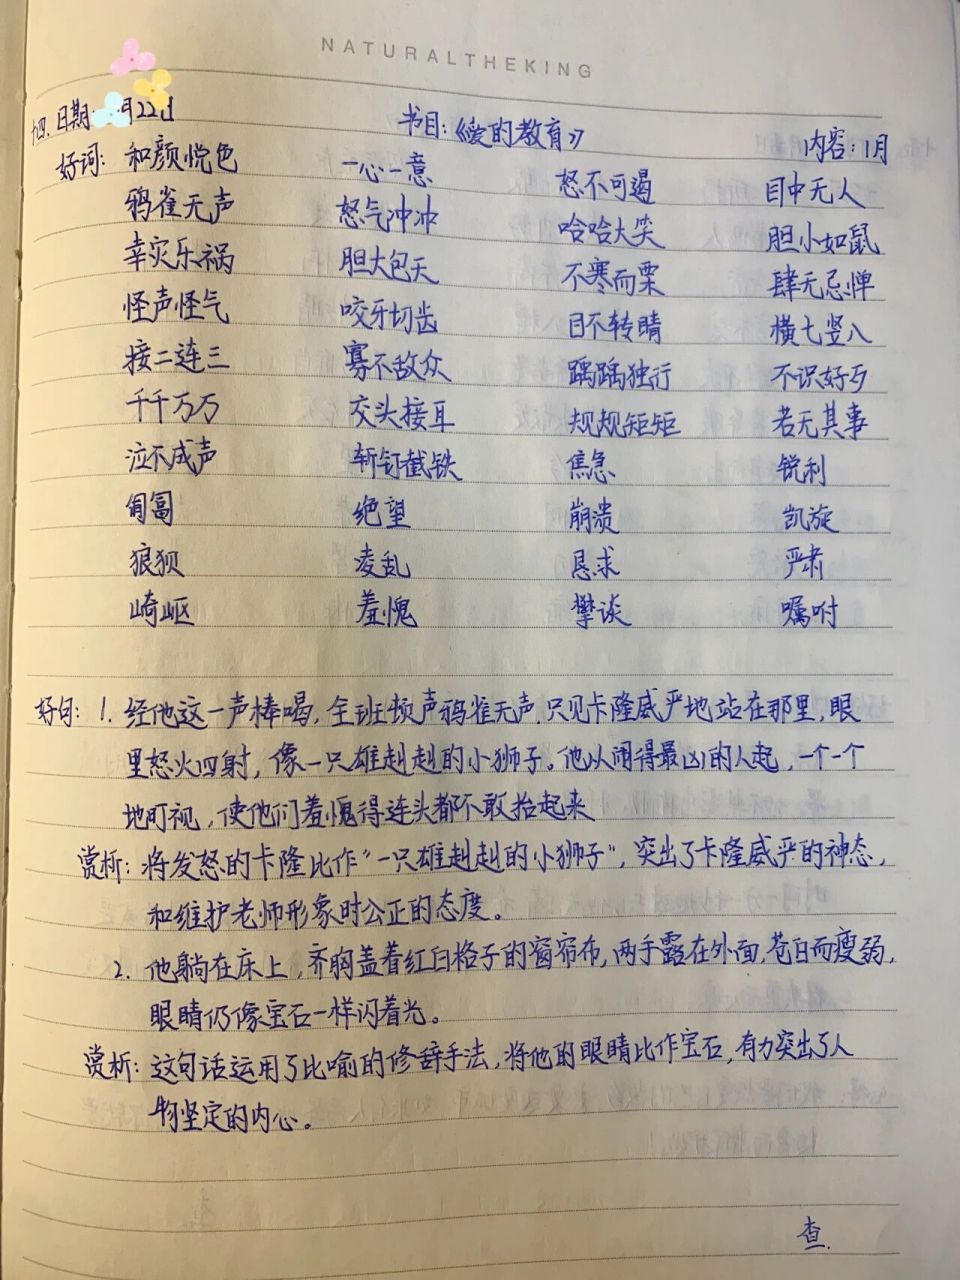 NATURALTHEKING
十四. 日期: 月22日 书目:《爱的教育》 内容:1月
好词: 和颜悦色 一心一意 怒不可遏 目中无人
鸦雀无声 怒气冲冲 哈哈大笑 胆小如鼠
幸灾乐祸 胆大包天 不寒而栗 肆无忌惮
怪声怪气 咬牙切齿 目不转睛 横七竖八
接二连三 寡不敌众 踽踽独行 不识好歹
千千万万 交头接耳 规规矩矩 若无其事
泣不成声 斩钉截铁 焦急 锐利
匍匐 绝望 崩溃 凯旋
狼狈 凌乱 恳求 严肃
崎岖 羞愧 攀谈 嘱咐
好句: 1. 经他这一声棒喝,全班顿声鸦雀无声.只见卡隆威严地站在那里,眼
里怒火四射,像一只雄赳赳的小狮子。他从闹得最凶的人起,一个一个
地盯视,使他们羞愧得连头都不敢抬起来
赏析: 将发怒的卡隆比作“一只雄赳赳的小狮子”,突出了卡隆威严的神态,
和维护老师形象时公正的态度。
2. 他躺在床上,齐胸盖着红白格子的窗帘布,两手露在外面,苍白而瘦弱,
眼睛仍像宝石一样闪着光。
赏析: 这句话运用了比喻的修辞手法,将他的眼睛比作宝石,有力突出了人
物坚定的内心。
查.